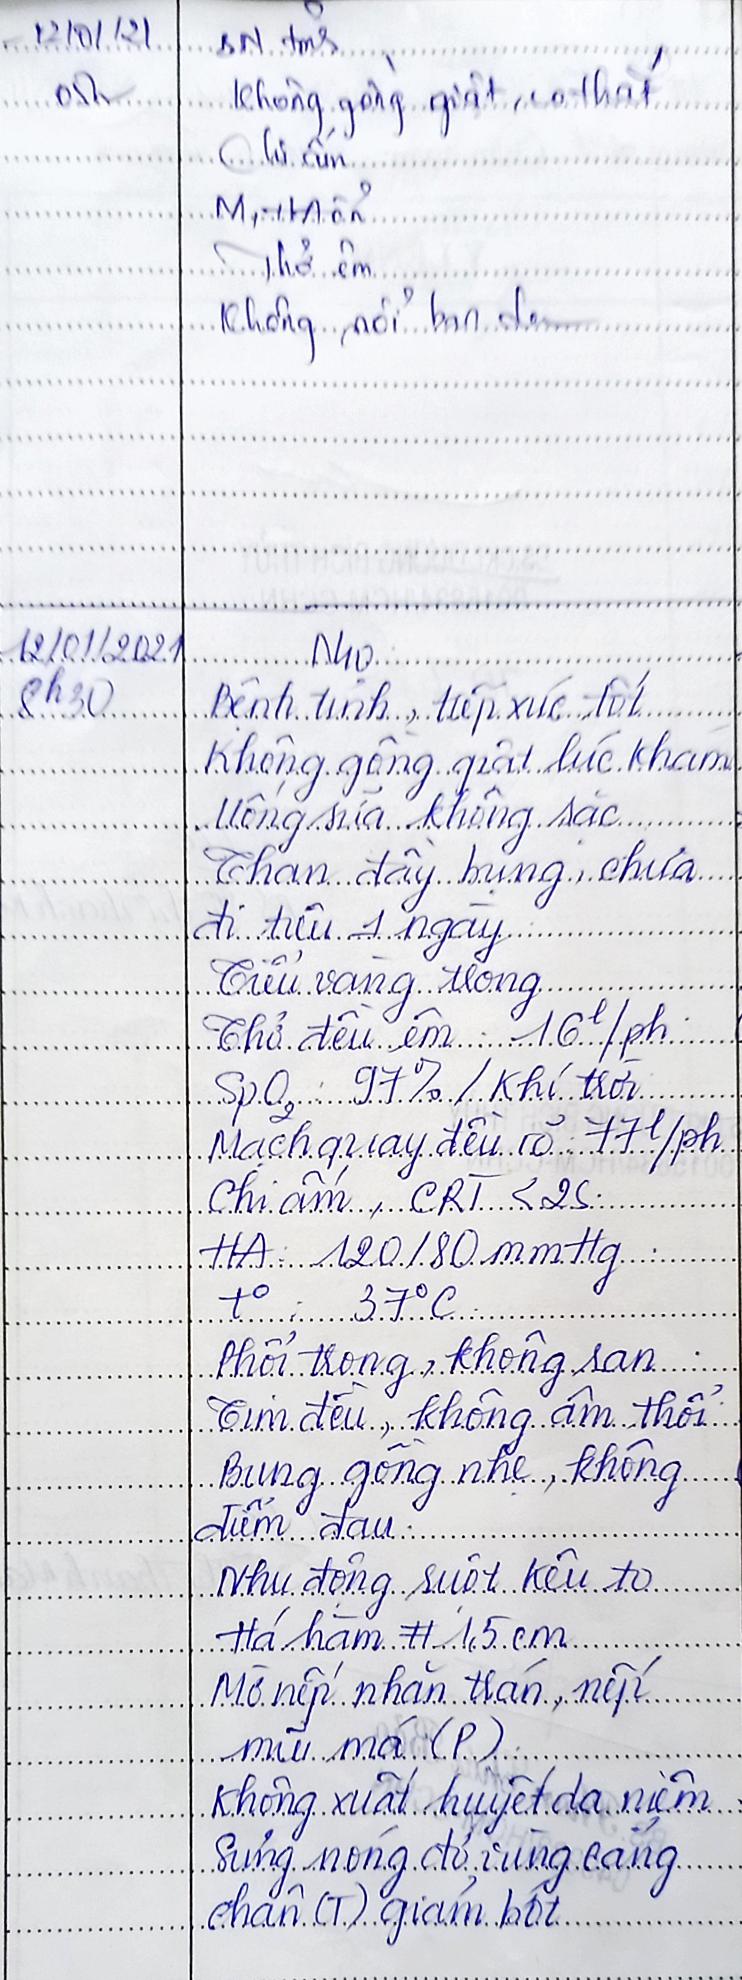 12/01/21
BN tỉnh
05h
Không gồng giật, co thắt
Chi ấm
M, HA ổn
Thở êm
Không nổi ban da
12/01/2021
Nhọ
8h30
Bệnh tỉnh, tiếp xúc tốt
Không gồng giật lúc khám
Uống sữa không sặc
Than đầy bụng, chưa
đi tiêu 1 ngày
Tiểu vàng trong
Thở đều êm : 16 l/ph
SpO2 : 97% / Khí trời
Mạch quay đều rõ : 77 l/ph
Chi ấm, CRT < 2s
HA : 120/80 mmHg
t° : 37°C
Phổi trong, không ran
Tim đều, không âm thổi
Bụng gồng nhẹ, không
điểm đau
Nhu động ruột kêu to
Há hàm # 1,5 cm
Mờ nếp nhăn trán, nếp
mũi má (P)
Không xuất huyết da niêm
Sưng nóng đỏ vùng cẳng
chân (T) giảm bớt